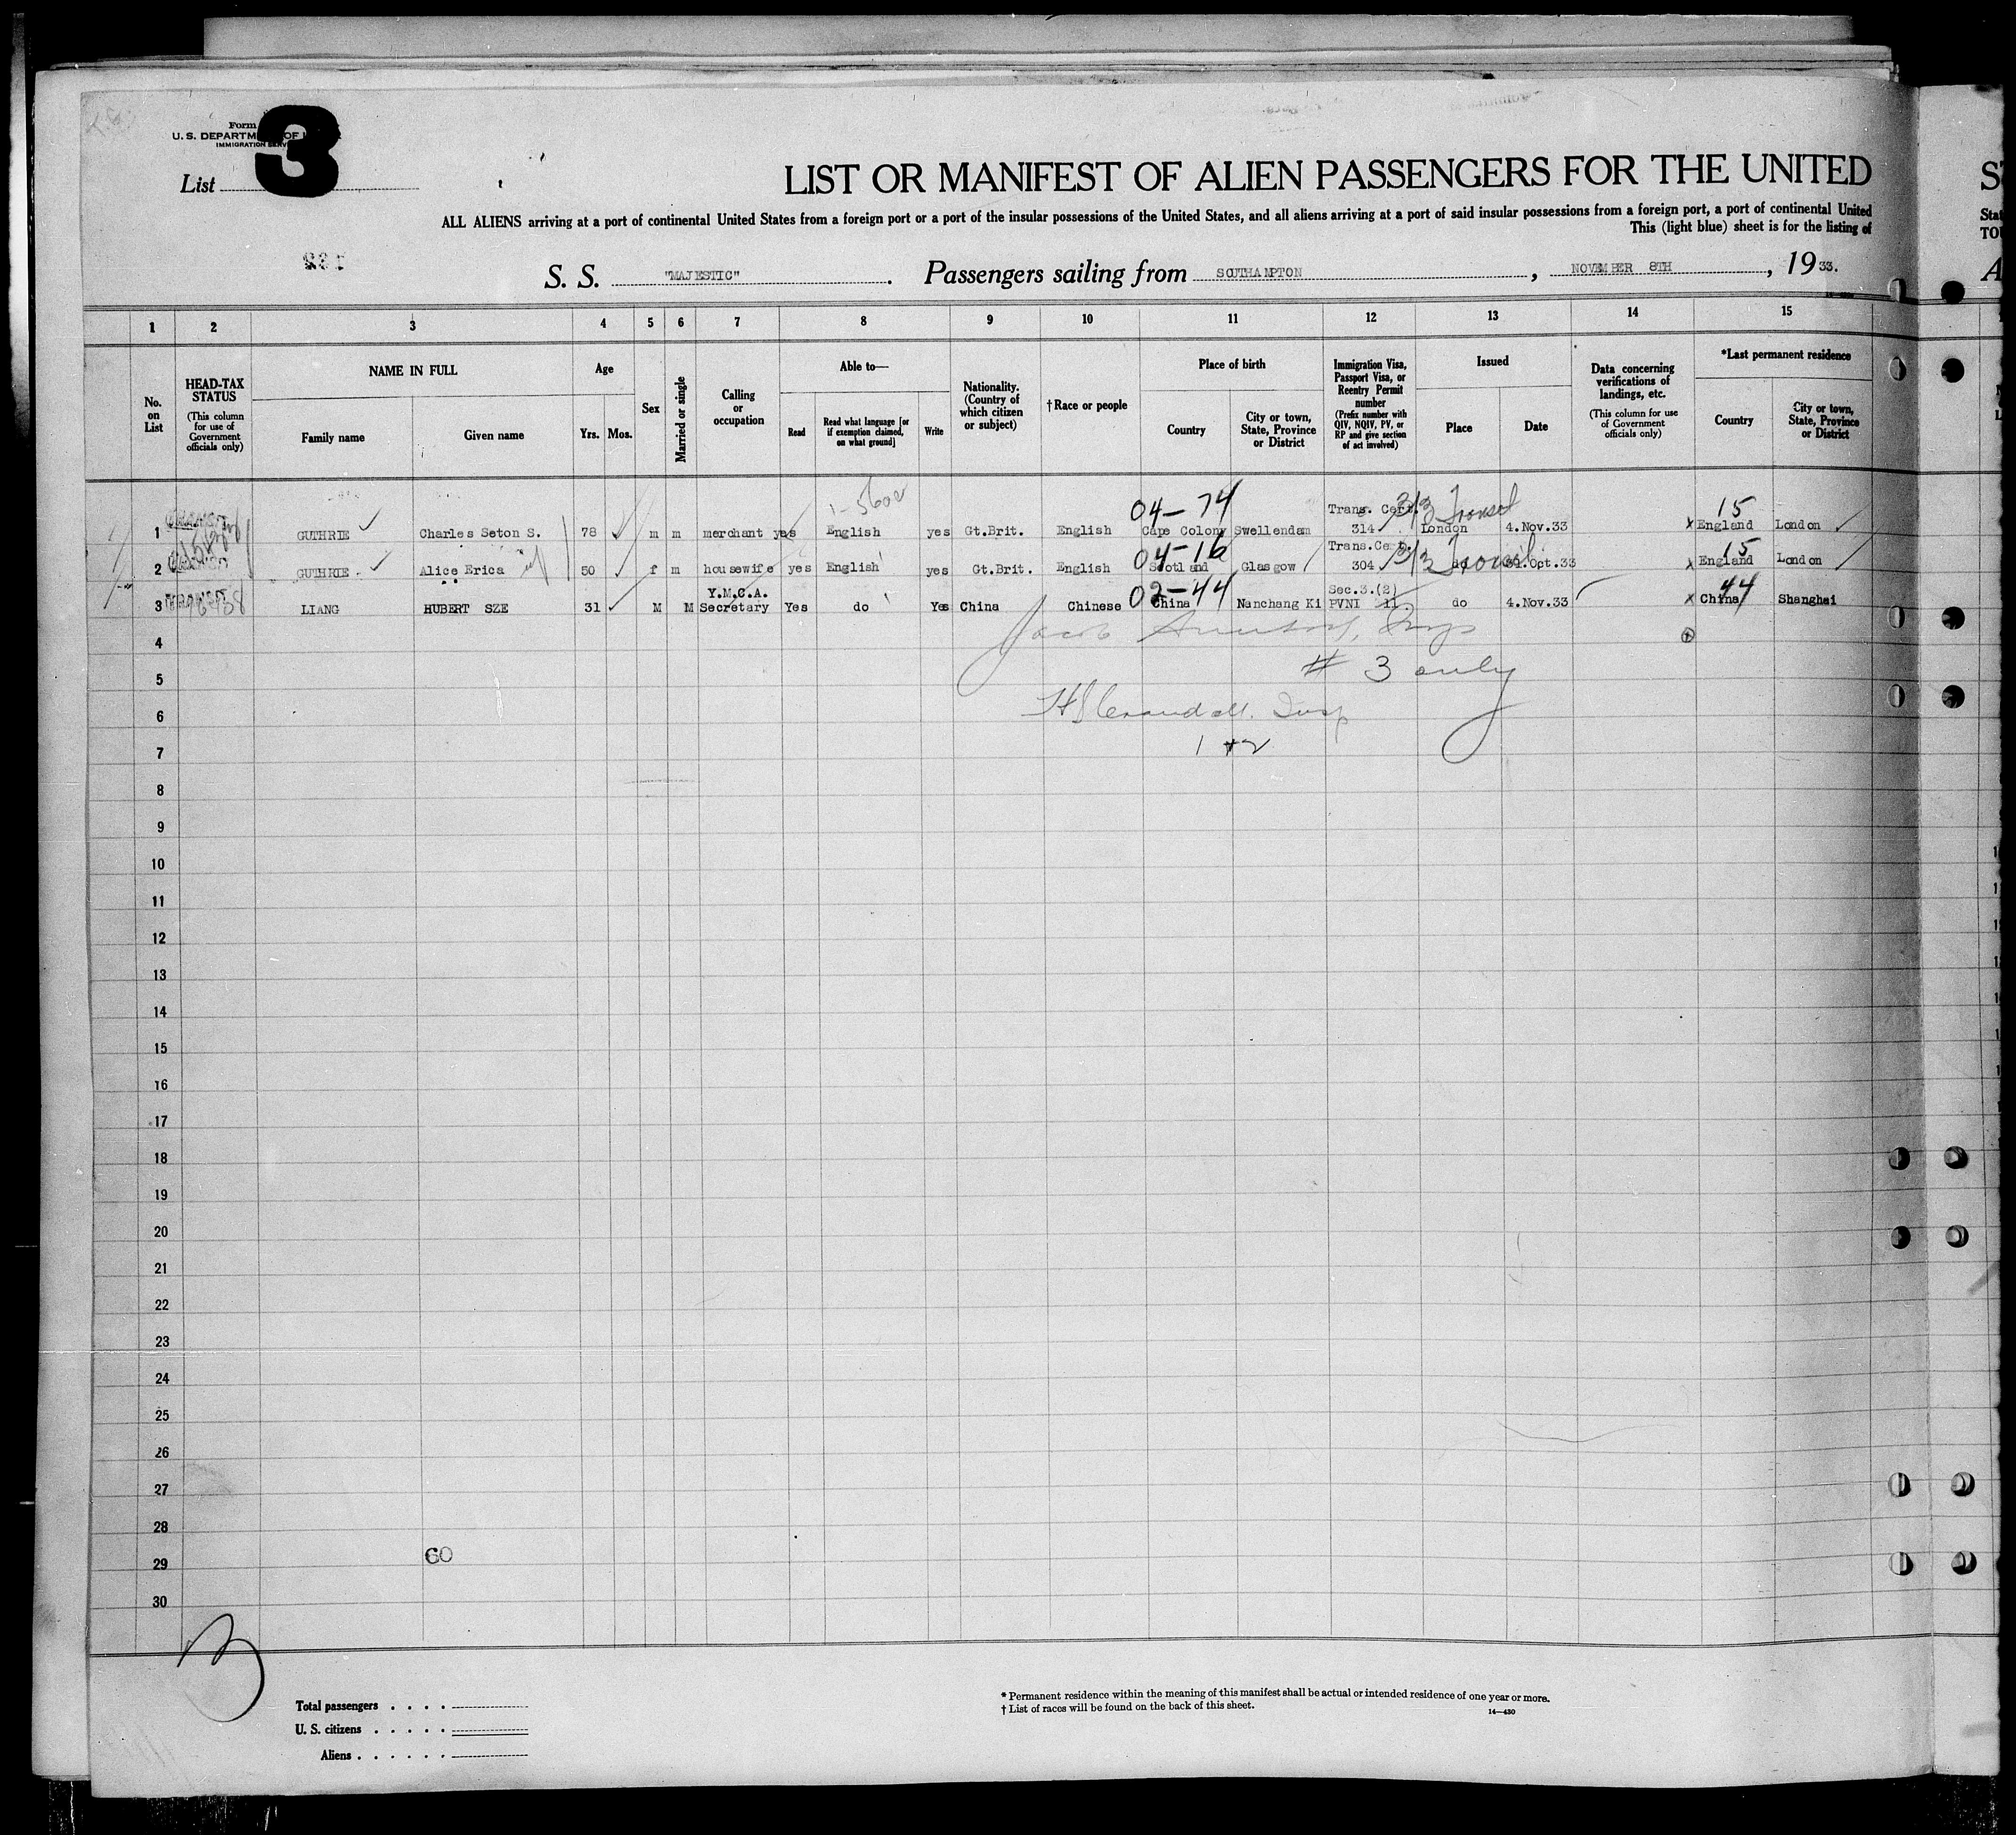 3
Form
U. S. DEPARTM OF
IMMIGRATION SERV
List
LIST OR MANIFEST OF ALIEN PASSENGERS FOR THE UNITED
ALL ALIENS arriving at a port of continental United States from a foreign port or a port of the insular possessions of the United States, and all aliens arriving at a port of said insular possessions from a foreign port, a port of continental United
This (light blue) sheet is for the listing of
S. S. "MAJESTIC". Passengers sailing from SOUTHAMPTON, NOVEMBER 8TH, 1933.
1 2 3 4 5 6 7 8 9 10 11 12 13 14 15
No. on List
HEAD-TAX STATUS
(This column for use of Government officials only)
NAME IN FULL
Family name
Given name
Age
Yrs. Mos.
Sex
Married or single
Calling or occupation
Able to—
Read
Read what language [or if exemption claimed, on what ground]
Write
Nationality. (Country of which citizen or subject)
†Race or people
Place of birth
Country
City or town, State, Province or District
Immigration Visa, Passport Visa, or Reentry Permit number
(Prefix number with QIV, NQIV, PV, or RP and give section of act involved)
Issued
Place
Date
Data concerning verifications of landings, etc.
(This column for use of Government officials only)
*Last permanent residence
Country
City or town, State, Province or District
1-5602 04-74 3/3 Transit 15
Trans. Cert.
1 GUTHRIE Charles Seton S. 78 m m merchant yes English yes Gt.Brit. English Cape Colony Swellendam 314 London 4.Nov.33 x England London
04-16 Trans.Cert. 3/3 Transit 15
2 GUTHRIE Alice Erica 50 f m housewife yes English yes Gt.Brit. English Scotland Glasgow 304 do 31.Oct.33 x England London
Y.M.C.A. 02-44 Sec.3.(2) 44
3 LIANG HUBERT SZE 31 M M Secretary Yes do Yes China Chinese China Nanchang Ki PVNI 11 do 4.Nov.33 x China Shanghai
4 Jacob
5 # 3 only
6 Insp
7 1 + 2
8
9
10
11
12
13
14
15
16
17
18
19
20
21
22
23
24
25
26
27
28
29 60
30
3
Total passengers . . . .
U. S. citizens . . . . .
Aliens . . . . . .
* Permanent residence within the meaning of this manifest shall be actual or intended residence of one year or more.
† List of races will be found on the back of this sheet.
14—430